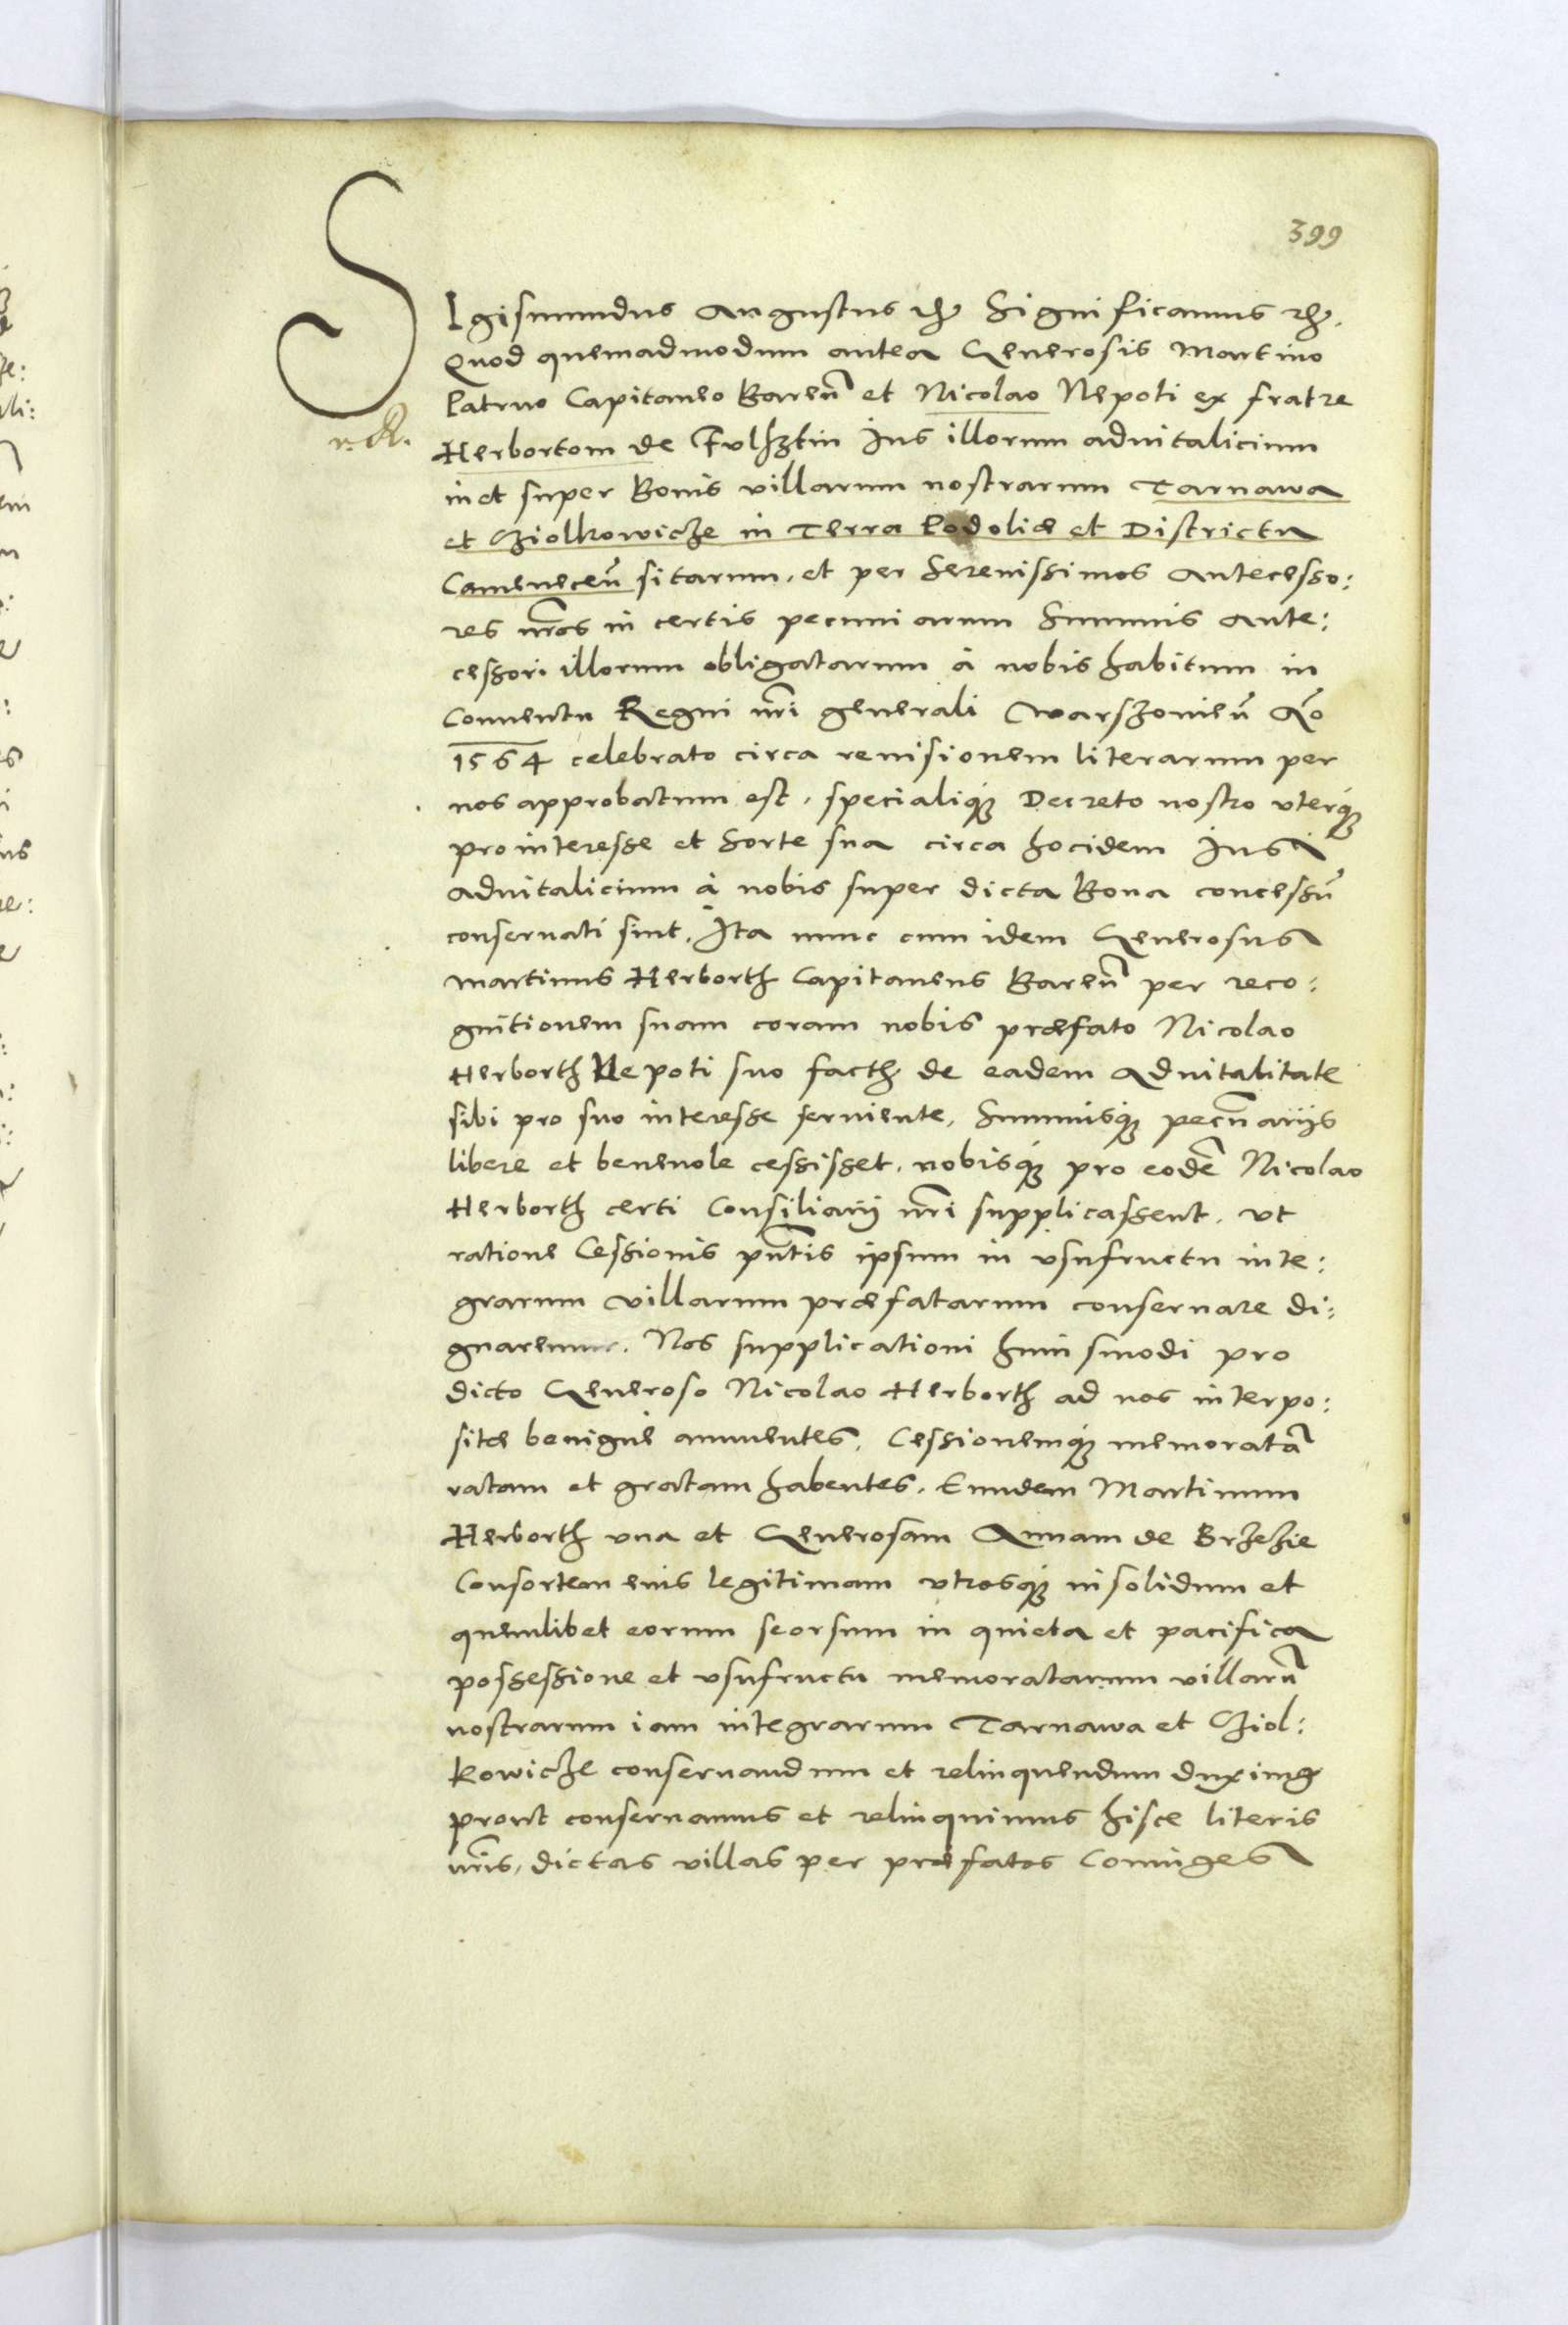 399
SIgismundus Augustus etc. Significamus etc.
Quod quemadmodum antea Generosis Martino
Patruo Capitaneo Baren̄ et Nicolao Nepoti ex fratre
Herbortom de Fulsztin Jus illorum aduitalicium
in et super Bonis villarum nostrarum Tarnawa
et Cziolkowicze in Terra Podoliæ et Districtu
Camenecen̄ sitarum, et per Serenissimos Antecesso:
res nr̄os in certis pecuniarum Summis Ante:
cessori illorum obligatarum à nobis habitum in
Conuentu Regni nr̄i generali Warszouien̄ Ao
1564 celebrato circa reuisionem literarum per
nos approbatum est, specialiq₃ Decreto nostro vterq₃
pro interesse et Sorte sua circa hocidem Jus
aduitalicium à nobis super dicta Bona concessū
conseruati sint. Ita nunc cum idem Generosus
Martinus Herborth Capitaneus Baren̄ per reco:
gnitionem suam coram nobis præfato Nicolao
Herborth Nepoti suo facth de eadem Aduitalitate
sibi pro suo interesse seruiente, Summisq₃ pecūariis
libere et beneuole cessisset, nobisq₃ pro eodē Nicolao
Herborth certi Consiliarii nr̄i supplicassent, vt
ratione Cessionis pn̄tis ipsum in vsufructu inte:
grarum villarum præfatarum conseruare di:
gnaremur. Nos supplicationi huiusmodi pro
dicto Generoso Nicolao Herborth ad nos interpo:
sitæ benigne annuentes, Cessionemq₃ memoratā
ratam et gratam habentes, Eundem Martinum
Herborth vna et Generosam Annam de Brzezie
Consortem eius legitimam vtrosq₃ insolidum et
quemlibet eorum seorsum in quieta et pacifica
possessione et vsufructu memoratarum villarū
nostrarum iam integrarum Tarnawa et Cziol:
kowicze conseruandum et relinquendum duximus
prout conseruamus et relinquimus hisce literis
nr̄is, dictas villas per præfatos Coniuges